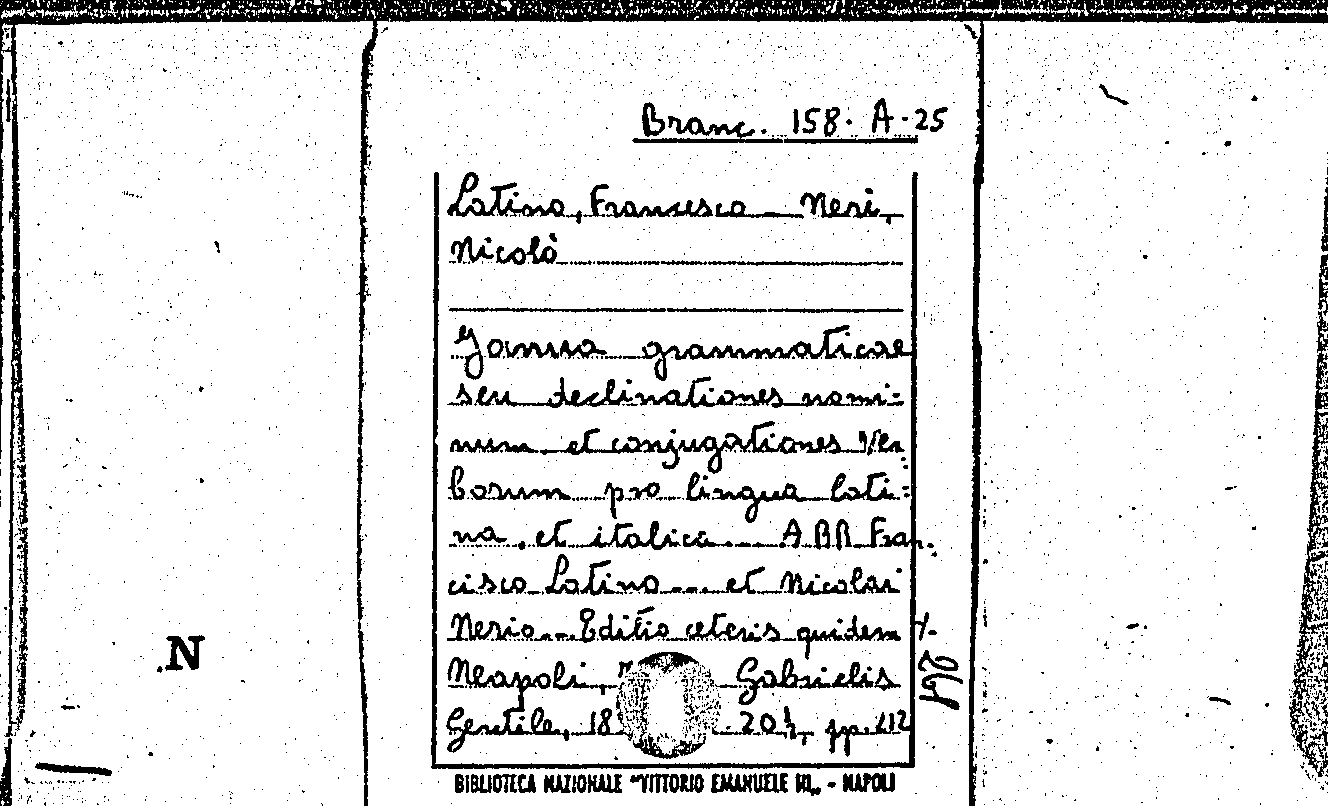 Branc. 158. A. 25
Latino, Francesco - Neri,
Nicolò
Janua grammaticae
seu declinationes nomi-
num et conjugationes Ver-
borum pro lingua lati-
na, et italica... A BB Fran-
cisco Latino... et Nicolai
Nerio... Editio ceteris quidem
Neapoli, Gabrielis
Gentile, 18 20½, pp. 212
N
BIBLIOTECA NAZIONALE "VITTORIO EMANUELE III„ - NAPOLI